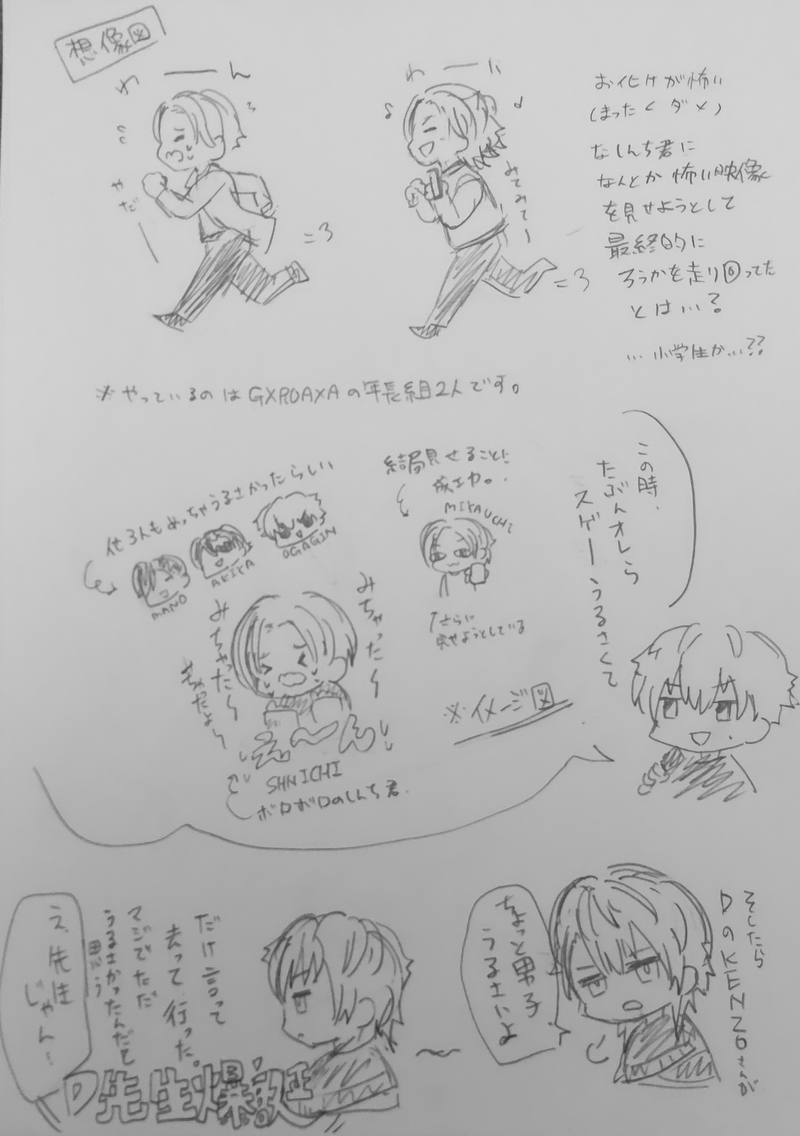 想像図
わーーん
やだーー
わーーい
みてみて〜
お化けが怖い
(まったくダメ)
なしんち君に
なんとか怖い映像
を見せようとして
最終的に
ろうかを走り回ってた
とは…?
…小学生か…??
※やっているのはGXROAXAの年長組2人です。
この時、
たぶんオレら
スゲーうるさくて
結局見せることに
成功。
MIYAUCHI
さらに
見せようとしている
他3人もめっちゃうるさかったらしい
MANO
AKIRA
OGAGIN
みちゃった〜
みちゃったよ〜
えーーん
SHNICHI
ボロボロのしんち君.
※イメージ図
そしたら
DのKENZOさんが
ちょっと男子
うるさいよ
だけ言って
去って行った。
マジでただ
うるさかったんだと
思う
え、先生
じゃん…
D先生爆誕